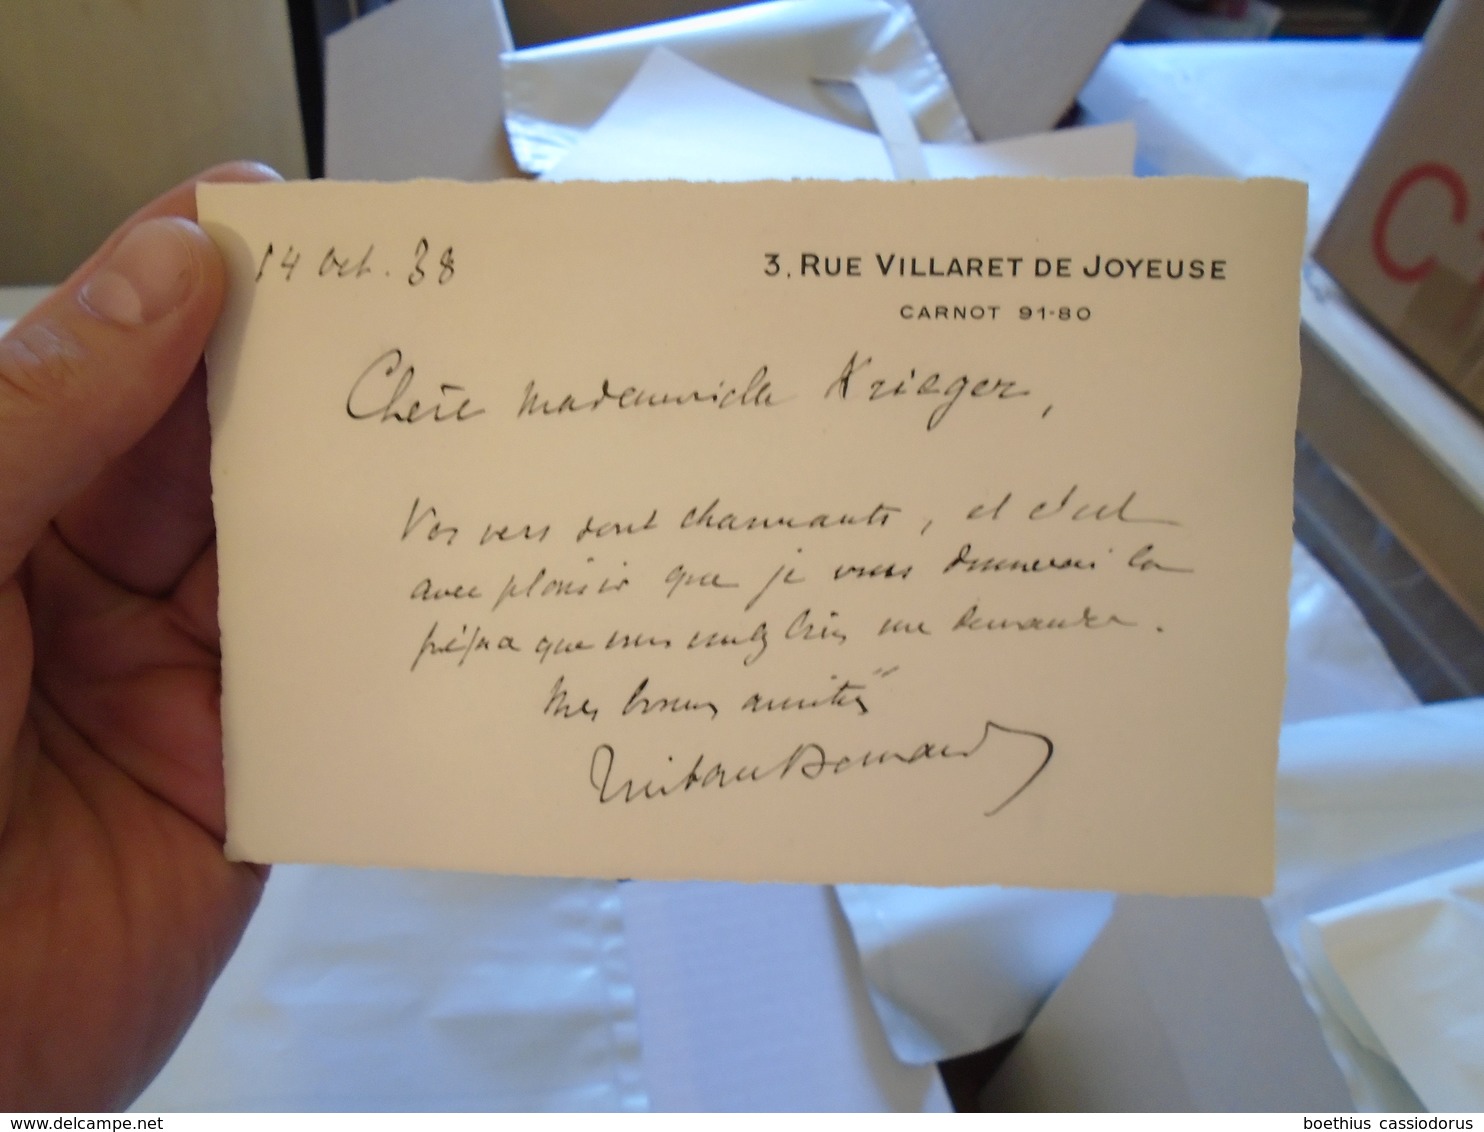 14 Oct. 38
3, RUE VILLARET DE JOYEUSE
CARNOT 91-80
Chère mademoiselle Krieger,
Vos vers sont charmants, et c'est
avec plaisir que je vous donnerai la
préface que vous voulez bien me demander.
Mes bonnes amitiés
Tristan Bernard
C
boethius cassiodorus